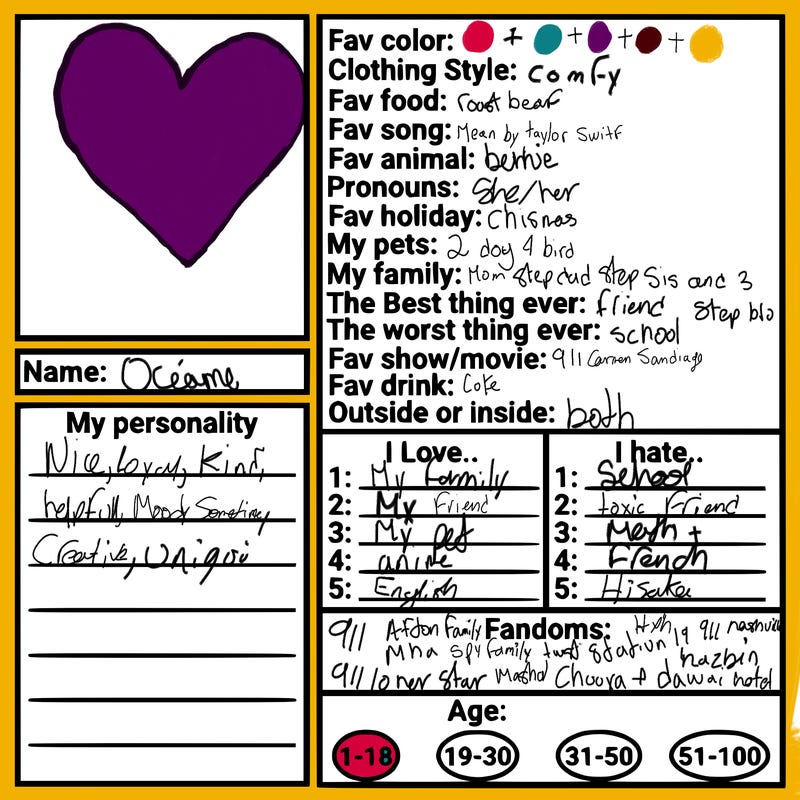 Name: Océane
My personality
Nice, loyal, Kind,
helpfull, Moody Someting
Creative,
Fav color: + + + +
Clothing Style: comfy
Fav food: roost beaf
Fav song: Mean by taylor Switf
Fav animal:
Pronouns: She/her
Fav holiday: Chismas
My pets: 2 dog 4 bird
My family: Mom step dad step sis and 3
step bro
The Best thing ever: friend
The worst thing ever: school
Fav show/movie: 911 Carmen Sandiago
Fav drink: Coke
Outside or inside: both
I Love..
1: My family
2: My Friend
3: My pet
4: anime
5: English
I hate..
1: School
2: toxic Friend
3: Math +
4: French
5: Hisaka
Fandoms:
911 Afton Family HxH 19 911 nashville
Mha spy family station hazbin
911 loner star Mashal Chuuya + dawai hotel
Age:
1-18 19-30 31-50 51-100